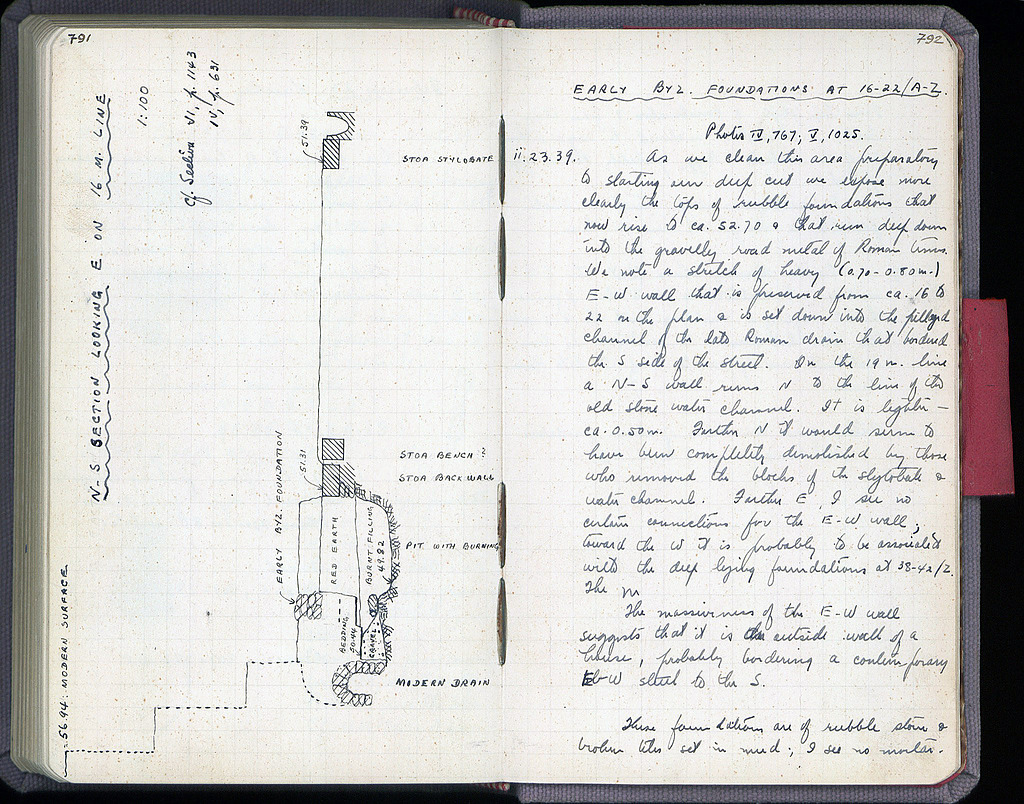 791
N-S SECTION LOOKING E. ON 16 M. LINE
1:100
cf. Section VI, p. 1143
IV, p. 631
51.39
STOA STYLOBATE
EARLY BYZ. FOUNDATION
51.31
STOA BENCH
STOA BACK WALL
RED EARTH
BURNT FILLING
49.82
PIT WITH BURNING
BEDDING
50.44
GRAVEL
MODERN DRAIN
56.94: MODERN SURFACE
792
EARLY BYZ. FOUNDATIONS AT 16-22/A-Z.
Photos IV, 767; V, 1025.
ii.23.39. As we clean this area preparatory
to starting our deep cut we expose more
clearly the tops of rubble foundations that
now rise to ca. 52.70 & that run deep down
into the gravelly road metal of Roman times.
We note a stretch of heavy (0.70-0.80m.)
E-W wall that is preserved from ca. 16 to
22 on the plan & is set down into the pillaged
channel of the late Roman drain that bordered
the S side of the street. On the 19 m. line
a N-S wall runs N to the line of the
old stone water channel. It is lighter -
ca. 0.50m. Further N it would seem to
have been completely demolished by those
who removed the blocks of the stylobate &
water channel. Further E, I see no
certain connections for the E-W wall;
toward the W it is probably to be associated
with the deep lying foundations at 38-42/Z.
The m
The massiveness of the E-W wall
suggests that it is the outside wall of a
house, probably bordering a contemporary
E-W street to the S.
These foundations are of rubble stone &
broken tiles set in mud; I see no mortar.